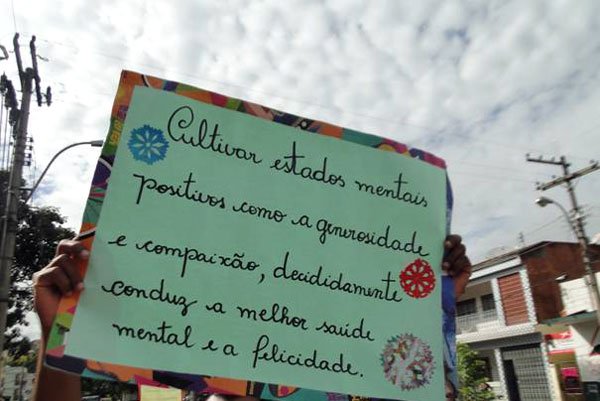 Cultivar estados mentais
positivos como a generosidade
e compaixão, decididamente
conduz a melhor saúde
mental e a felicidade.